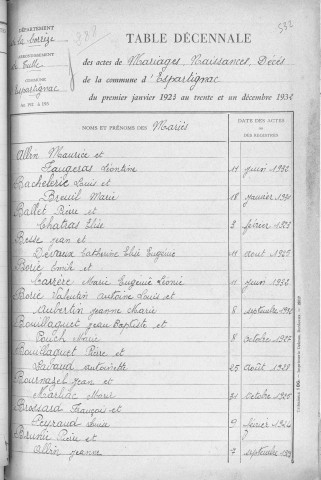 DÉPARTEMENT
de la Corrèze
ARRONDISSEMENT
de Tulle
COMMUNE
d'Espartignac
TABLE DÉCENNALE
des actes de Mariages, Naissances, Décès
de la commune d'Espartignac
du premier janvier 1923 au trente et un décembre 1932
NOMS ET PRÉNOMS DES Mariés
DATE DES ACTES
OU
DES REGISTRES
Allin Maurice et
Faugeras Léontine 11 juin 1932
Bachelerie Louis et
Breuil Marie 18 janvier
Ballet Pierre et
Chatras Elise 3 février
Besse Jean et
Devaux Catherine Elise Eugénie 11 août 1925
Borie Emile et
Carrère Marie Eugénie Léonie 11 juin
Borie Valentin Antoine Louis et
Aubertin Jeanne Marie 8 septembre
Bouillaguet Jean Baptiste et
Pouch Marie 8 octobre
Bouillaguet Pierre et
Antoinette 25 août 1928
Bournazel Jean et
Marlhac Marie 31 octobre
Brossard François et
Peyraud 9 février
Brunie Pierre et
Allin Jeanne 7 septembre